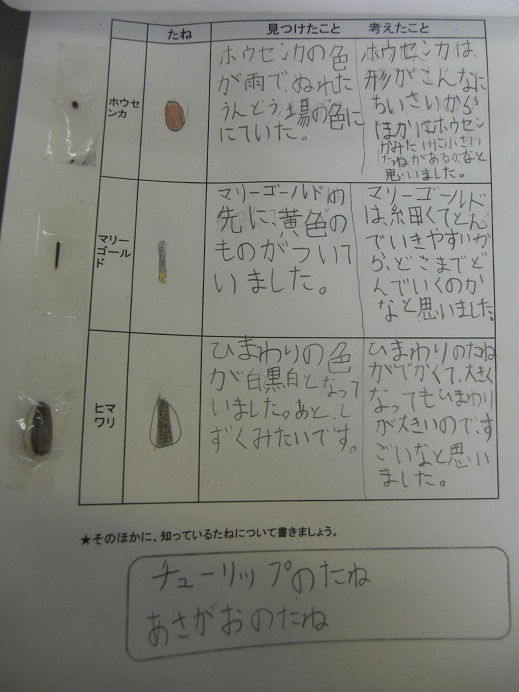 たね
見つけたこと
考えたこと
ホウセ
ンカ
ホウセンカの色
が雨で、ぬれた
うんどう場の色に
にていた。
ホウセンカは、
形がこんなに
ちいさいから
ほかにホウセン
かみたいに小さい
たねがあるかなと
思いました。
マリー
ゴール
ド
マリーゴールドの
先に、黄色の
ものがついて
いました。
マリーゴールド
は、細くてとん
でいきやすいか
ら、どこまでと
んでいくのか
なと思いました
ヒマ
ワリ
ひまわりの色
が白黒白となって
いました。あと、し
ずくみたいです。
ひまわりのたね
がでかくて、大きく
なってもひまわり
が大きいので、す
ごいなと思い
ました。
★そのほかに、知っているたねについて書きましょう。
チューリップのたね
あさがおのたね